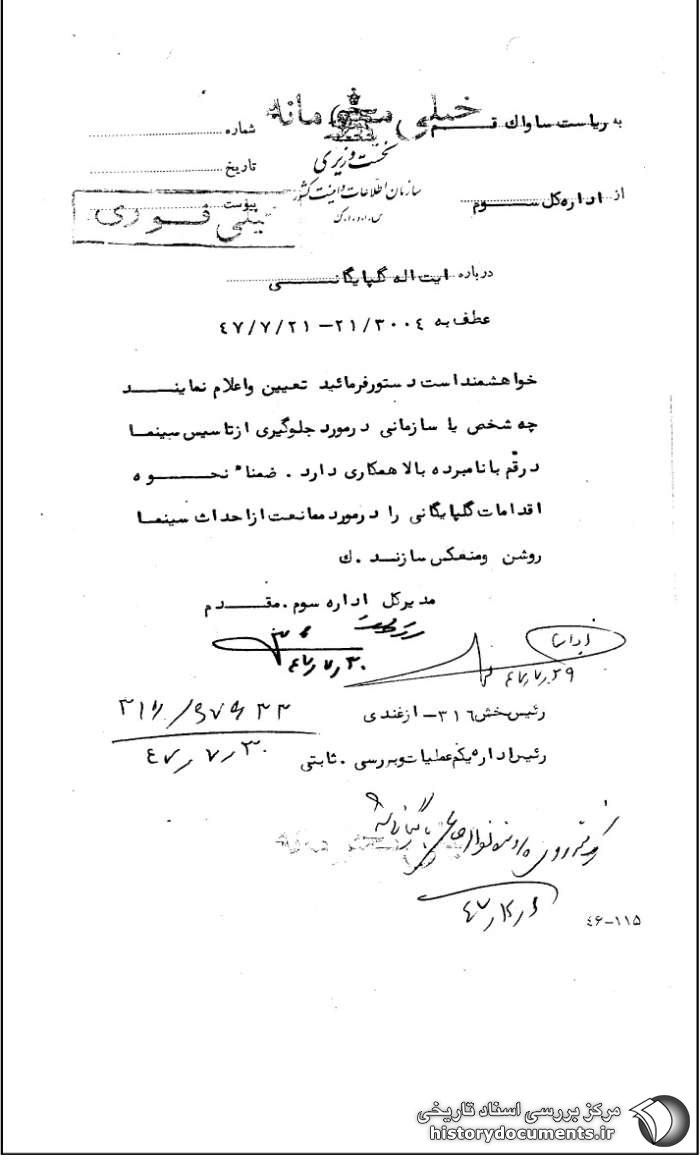 خیلی محرمانه
به ریاست ساواک قم
نخست وزیری
سازمان اطلاعات و امنیت کشور
س.ا.و.ا.ک
شماره
تاریخ
پیوست
از اداره کل سوم
خیلی فوری
درباره ایت اله گلپایگانی
عطف به ۲۱/۳۰۰٤ – ٤۷/۷/۲۱
خواهشمند است دستور فرمائید تعیین و اعلام نمایند
چه شخص یا سازمانی در مورد جلوگیری از تاسیس سینما
در قم با نامبرده بالا همکاری دارد . ضمناً نحوه
اقدامات گلپایگانی را در مورد ممانعت از احداث سینما
روشن و منعکس سازند . ک
مدیر کل اداره سوم . مقدم
٤۷٫۷٫۳۰
٤۷٫۷٫۲۹
رئیس بخش ۳۱٦ – ازغندی
رئیس اداره یکم عملیات و بررسی . ثابتی
٤۷٫۷٫۳۰
٤۶–۱۱۵
مرکز بررسی اسناد تاریخی
historydocuments.ir